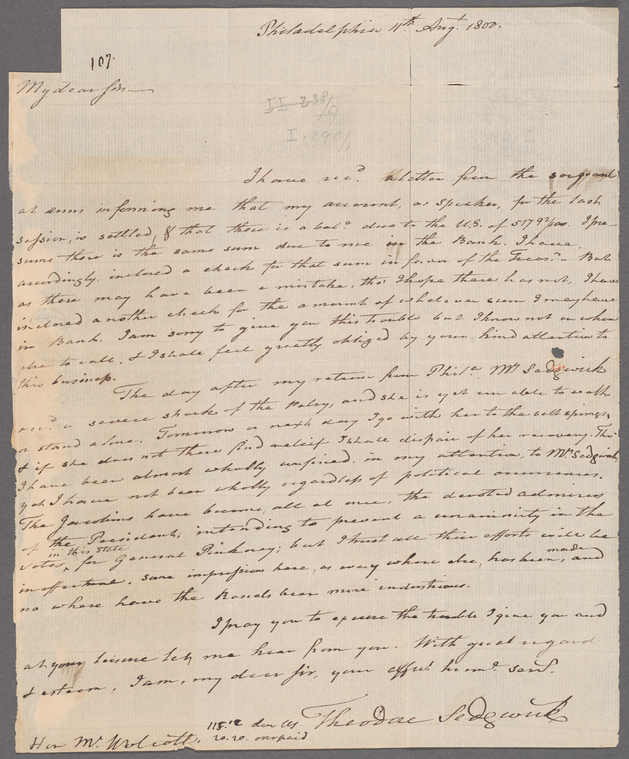 Philadelphia 11th Augt. 1800.
107.
My dear Sir
II 338/9
I. 290/1
I have recd. a letter from the sergeant
at arms informing me that my account, as speaker, for the last
session, is settled, & that there is a bale. due to the U.S. of I pre-
sume there is the same sum due to me in the Bank. I have,
accordingly, inclosed a check for that sum in favor of the Treasr. – But
as there may have been a mistake, tho' I hope there has not, I have
inclosed another check for the amount of whatever sum I may have
in Bank. I am sorry to give you this trouble but I know not on whom
else to call, & I shall feel greatly obliged by your kind attention to
this business.
The day after my return from Phila. Mrs. Sedgwick
recd. a severe shock of the Palsy, and she is yet unable to walk
or stand alone. Tomorrow or next day I go with her to the salt springs,
& if she does not there find relief I shall despair of her recovery. Tho'
I have been almost wholly confined in my attention, to Mrs. Sedgwick
yet I have not been wholly regardless of political occurrences.
The Jacobins have become, all at once, the devoted admirers
of the President; intending to prevent a unanimity in the
in this state
votes, for General Pinkney; but I trust all their efforts will be
ineffectual. Some impression here, as every where else, has been made, and
no where have the Rascals been more industrious.
I pray you to excuse the trouble I give you and
at your leisure let me hear from you. With great regard
& esteem, I am, my dear sir, your affect. humle. servt.
Theodore Sedgwick
Hon Mr. Wolcott.
118.12 due US
20.20. overpaid